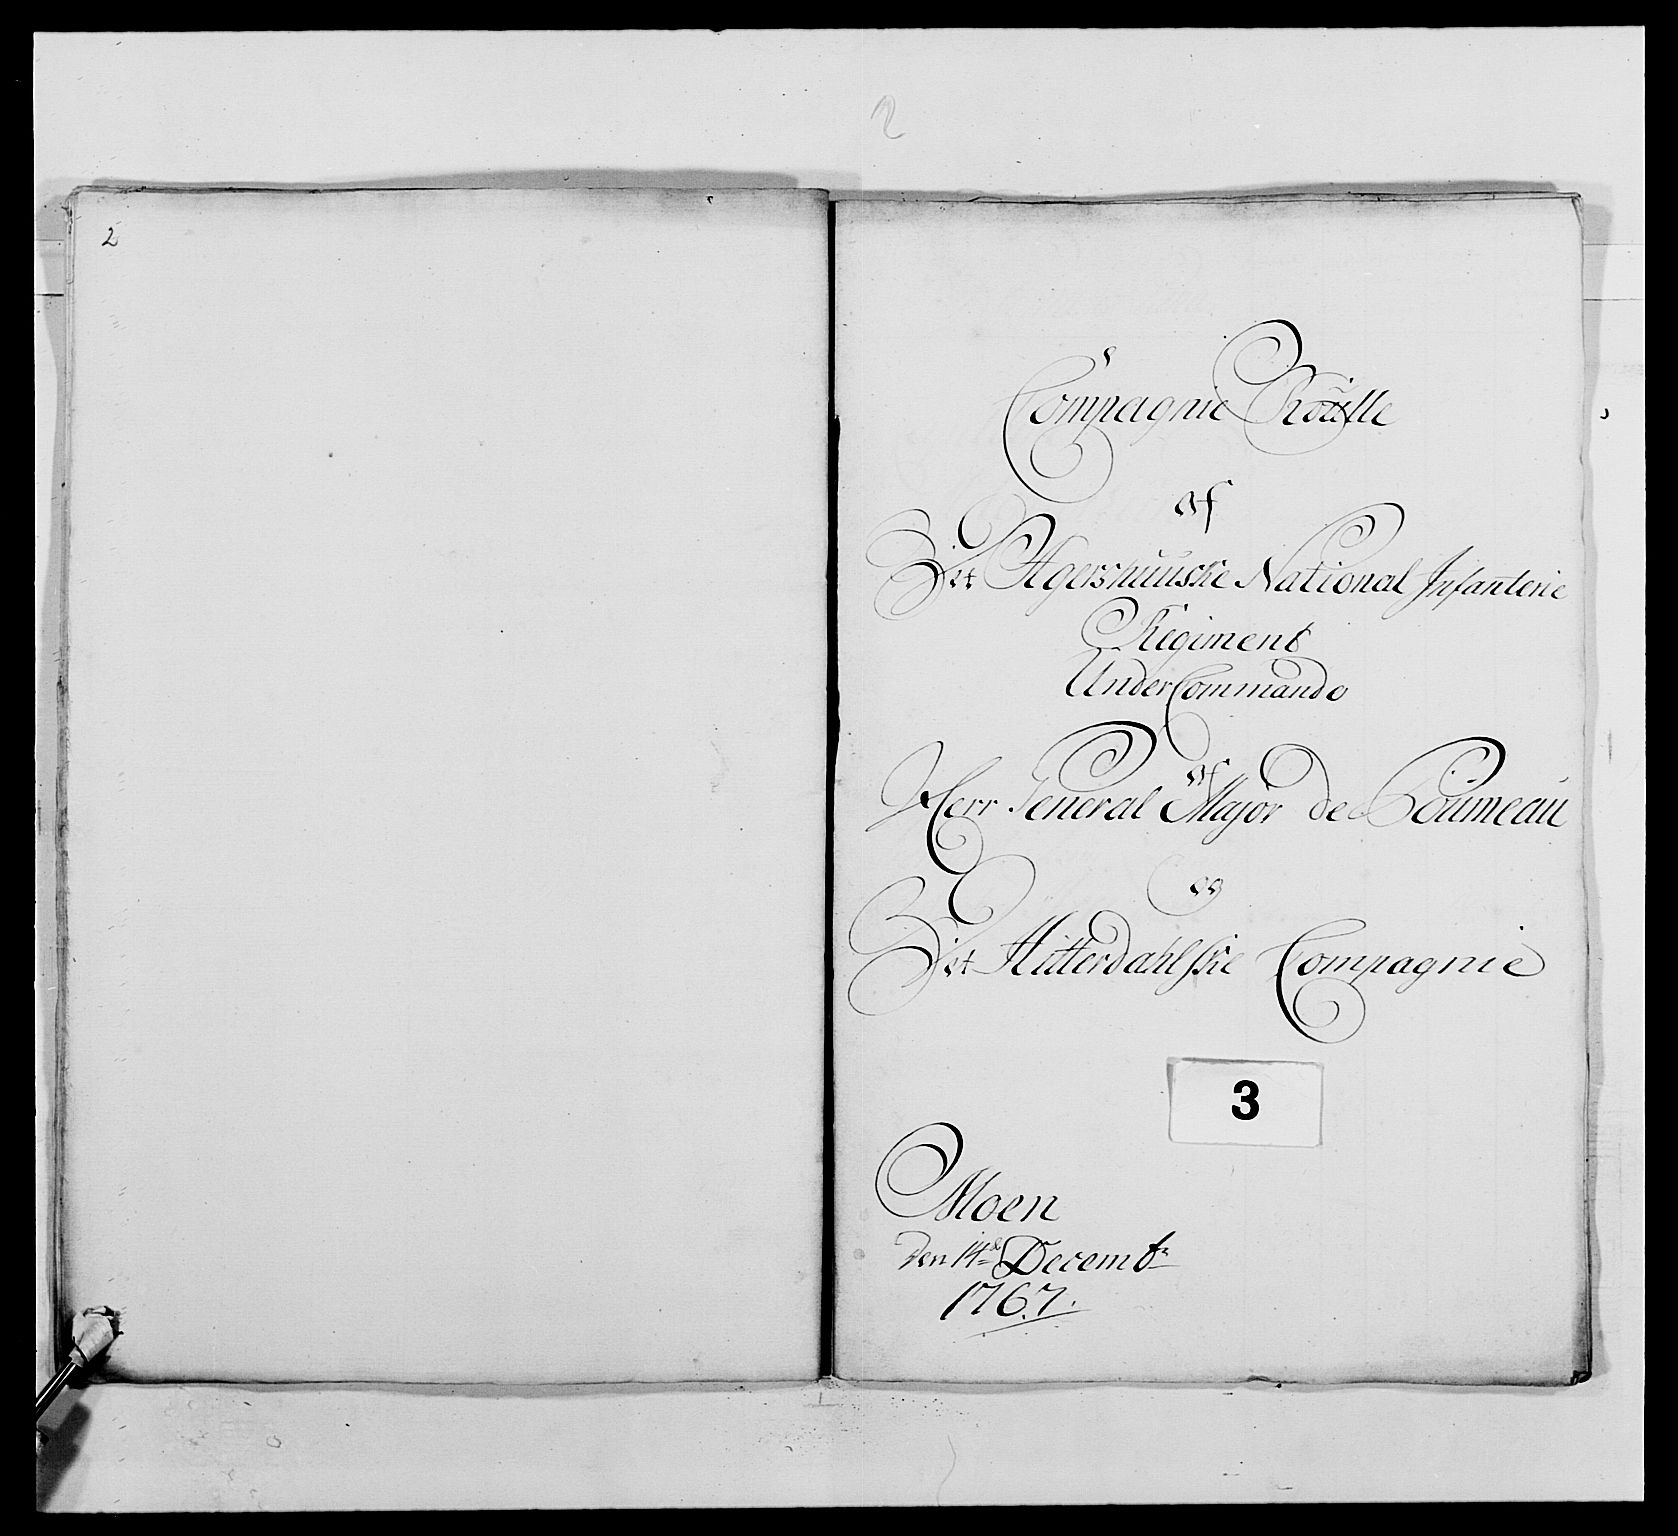 2
2
Compagnie Roulle
af
Det Agershuuske National Infanterie
Regiment
Under Commando
af
Herr General Major de Poumeau
og
Det Hitterdahlske Compagnie
3
Moen
Den 14de Decembr
1767.